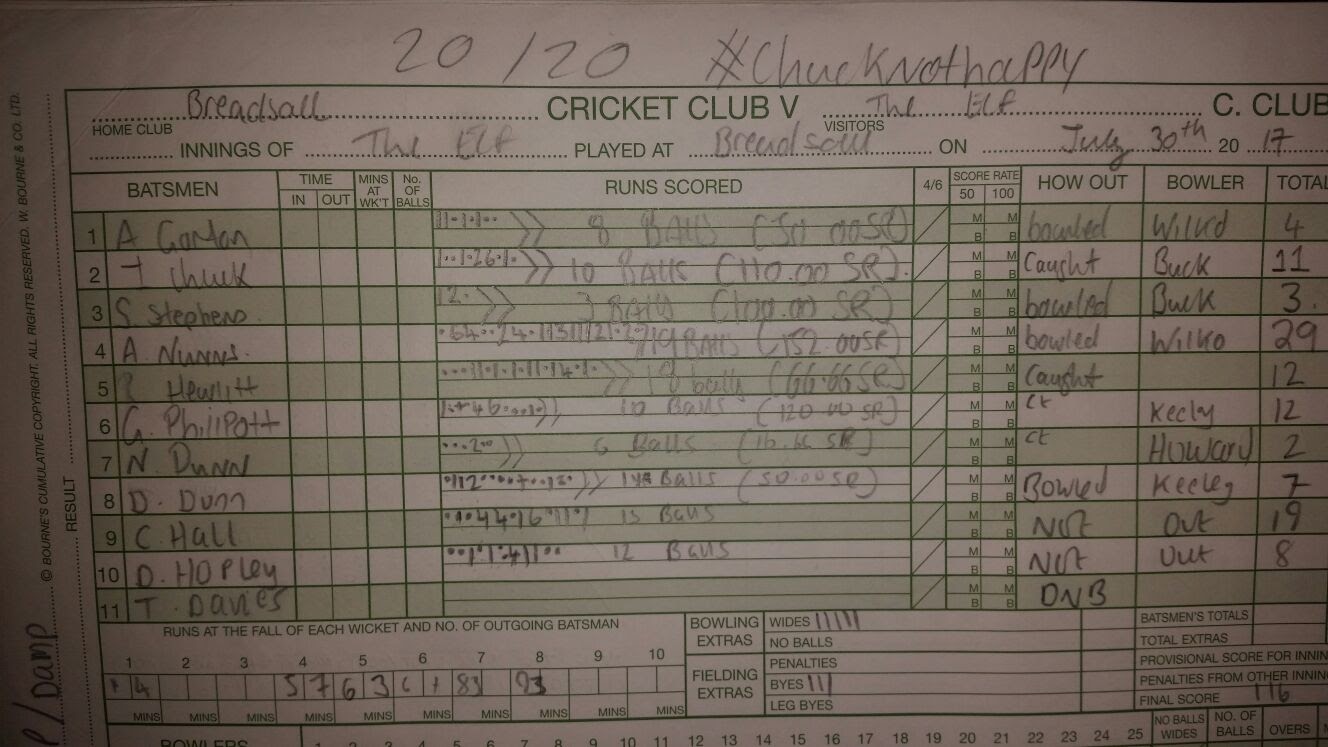 20/20 #Chucknothappy
Breadsall CRICKET CLUB V The Elf C. CLUB
HOME CLUB VISITORS
INNINGS OF The Elf PLAYED AT Breadsall ON July 30th 20 17
BATSMEN TIME MINS AT WK'T No. OF BALLS RUNS SCORED 4/6 SCORE RATE HOW OUT BOWLER TOTAL
IN OUT 50 100
1 A Gorton 8 Balls (50.00SR) M M B B bowled Wilko 4
2 I Chuck 10 Balls (110.00 SR). M M B B Caught Buck 11
3 S Stephens. 3 Balls (100.00 SR) M M B B bowled Buck 3.
4 A. Nunns. 19 Balls (152.00SR) M M B B bowled Wilko 29
5 Hewlitt 18 balls (66.66SR) M M B B Caught 12
6 G. Philpott 10 Balls (120.00 SR) M M B B ct Keely 12
7 N. Dunn 6 Balls (16.66 SR) M M B B ct Howard 2
8 D. Dunn Balls (50.00SR) M M B B Bowled Keeley 7
9 C. Hall 15 Balls M M B B Not Out 19
10 D. Hopley 12 Balls M M B B Not Out 8
11 T. Davies M M B B DNB
RUNS AT THE FALL OF EACH WICKET AND NO. OF OUTGOING BATSMAN
1 2 3 4 5 6 7 8 9 10
4 57 63 83 93
MINS MINS MINS MINS MINS MINS MINS MINS MINS MINS
BOWLING EXTRAS WIDES
NO BALLS
FIELDING EXTRAS PENALTIES
BYES
LEG BYES
BATSMEN'S TOTALS
TOTAL EXTRAS
PROVISIONAL SCORE FOR INNIN
PENALTIES FROM OTHER INNIN
FINAL SCORE 116
BOWLERS 1 2 3 4 5 6 7 8 9 10 11 12 13 14 15 16 17 18 19 20 21 22 23 24 25 NO BALLS WIDES NO. OF BALLS OVERS
© BOURNE'S CUMULATIVE COPYRIGHT. ALL RIGHTS RESERVED. W. BOURNE & CO. LTD.
RESULT
P/Damp